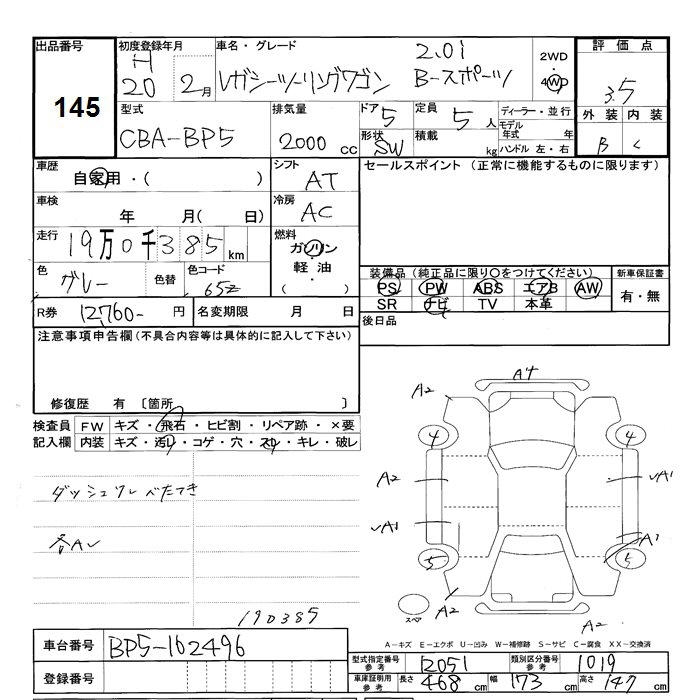 出品番号 初度登録年月 車名・グレード 2.0i 2WD 評価点
145 H 20 2月 レガシーツーリングワゴン B-スポーツ ・ 4WD 3.5
型式 排気量 ドア 5 定員 5人 ディーラー・並行 外装 内装
CBA-BP5 2000cc 形状 SW 積載 kg モデル年式 年 B C
ハンドル 左・右
車歴 シフト セールスポイント (正常に機能するものに限ります)
自家用・( ) AT
車検 冷房
年 月( 日) AC
走行 19万0千385km 燃料
ガソリン
色 色替 色コード 軽油 装備品 (純正品に限り○をつけてください) 新車保証書
グレー 65Z ・( ) PS PW ABS エアB AW 有・無
R券 12,760- 円 名変期限 月 日 SR ナビ TV 本革
注意事項申告欄(不具合内容等は具体的に記入して下さい) 後日品
修復歴 有 〔箇所 〕
検査員 FW キズ・飛石・ヒビ割・リペア跡・×要
記入欄 内装 キズ・汚レ・コゲ・穴・スレ・キレ・破レ
A4
A2
4 4
A2 A1
A1 A1
5 5
A2 スペア A2
ダッシュワレベたつき
各AL
190385
A-キズ E-エクボ U-凹み W-補修跡 S-サビ C-腐食 XX-交換済
車台番号 BP5-162496
型式指定番号 参考 12051 類別区分番号 参考 1019
登録番号
車庫証明用 参考 長さ 468cm 幅 173cm 高さ 147cm